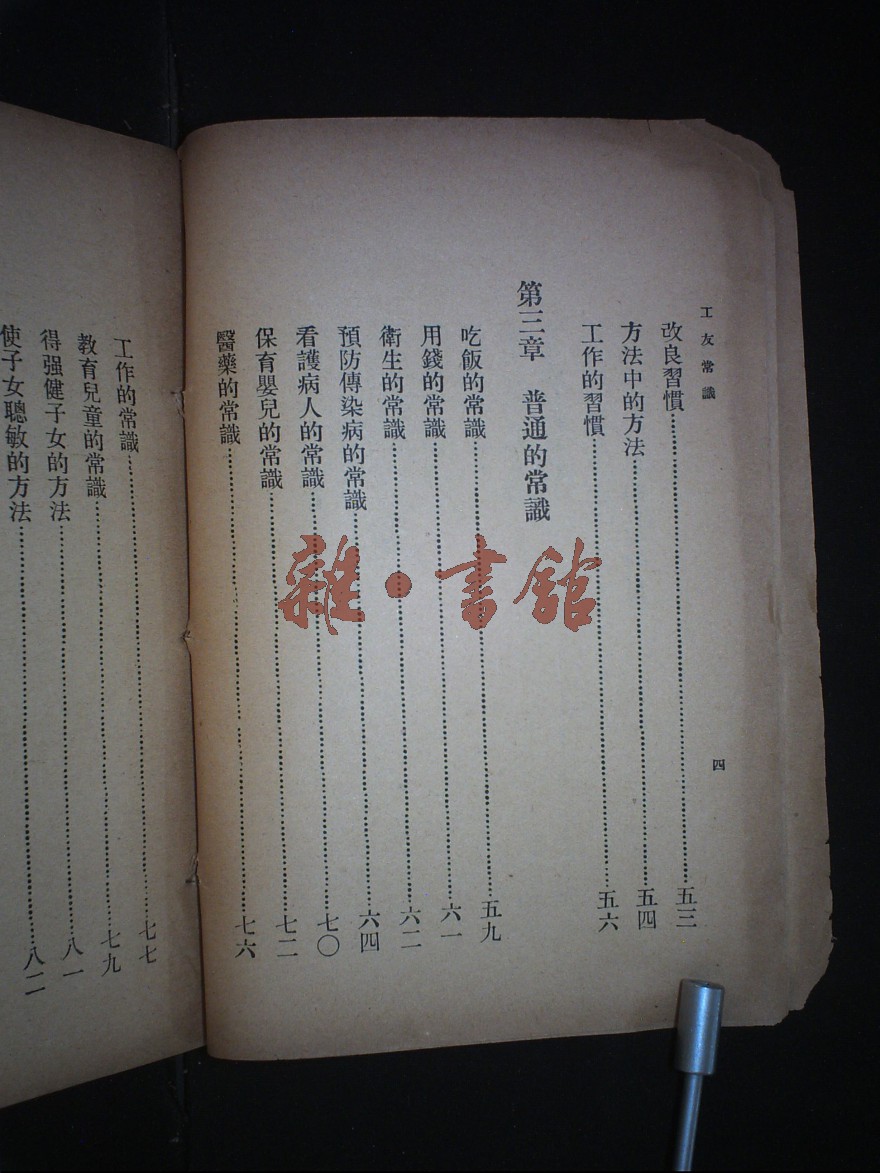 工友常識
四
改良習慣……五三
方法中的方法……五四
工作的習慣……五六
第三章　普通的常識
吃飯的常識……五九
用錢的常識……六一
衛生的常識……六二
預防傳染病的常識……六四
看護病人的常識……七〇
保育嬰兒的常識……七二
醫藥的常識……七六
工作的常識……七七
教育兒童的常識……七九
得强健子女的方法……八一
使子女聰敏的方法……八二
雜·書館